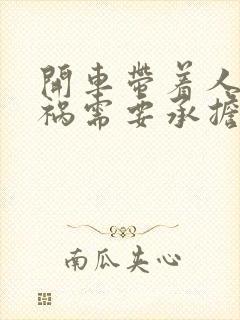 開車帶着人
祸需要承擔
南瓜夹心